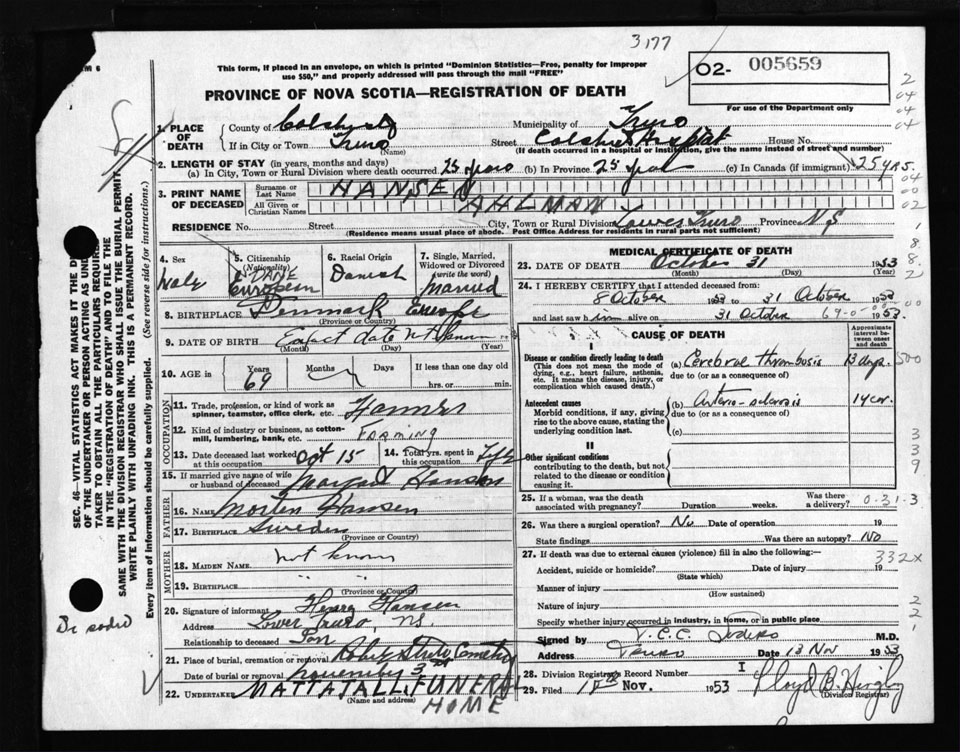 3177
This form, if placed in an envelope, on which is printed "Dominion Statistics—Free, penalty for improper
use $50," and properly addressed will pass through the mail "FREE"
O2- 005659
For use of the Department only
PROVINCE OF NOVA SCOTIA—REGISTRATION OF DEATH
1. PLACE OF DEATH County of Municipality of Truro
If in City or Town Truro (Name) Street House No.
(If death occurred in a hospital or institution, give the name instead of street and number)
2. LENGTH OF STAY (in years, months and days)
(a) In City, Town or Rural Division where death occurred 25 years (b) In Province 25 years (c) In Canada (if immigrant) 25 yrs.
3. PRINT NAME OF DECEASED Surname or Last Name HANSEN
All Given or Christian Names AHLMAN
RESIDENCE No. Street City, Town or Rural Division Lower Truro Province N.S
(Residence means usual place of abode. Post Office Address for residents in rural parts not sufficient)
4. Sex Male
5. Citizenship (Nationality) DANE European
6. Racial Origin Danish
7. Single, Married, Widowed or Divorced (write the word) Married
8. BIRTHPLACE Denmark Europe
(Province or Country)
9. DATE OF BIRTH Exact date not known
(Month) (Day) (Year)
10. AGE in Years 69 Months Days If less than one day
hrs. or min.
OCCUPATION
11. Trade, profession, or kind of work as spinner, teamster, office clerk, etc. Farmer
12. Kind of industry or business, as cotton-mill, lumbering, bank, etc. Farming
13. Date deceased last worked at this occupation Oct 15
14. Total yrs. spent in this occupation Fifty
15. If married give name of wife or husband of deceased Margaret Hansen
FATHER
16. NAME Morten Hansen
17. BIRTHPLACE Sweden
(Province or Country)
MOTHER
18. MAIDEN NAME not known
19. BIRTHPLACE " "
(Province or Country)
20. Signature of informant Henry Hansen
Address Lower Truro, N.S.
Relationship to deceased Son
21. Place of burial, cremation or removal Robie Street Cemetery
Date of burial or removal November 3rd
22. UNDERTAKER MATTATALL FUNERAL
(Name and address) HOME
MEDICAL CERTIFICATE OF DEATH
23. DATE OF DEATH October 31 1953
(Month) (Day) (Year)
24. I HEREBY CERTIFY that I attended deceased from:
8 October 1953 to 31 October 1953
and last saw him alive on 31 October 1953
CAUSE OF DEATH
Approximate interval between onset and death
I
Disease or condition directly leading to death (a) Cerebral thrombosis
(This does not mean the mode of dying, e.g., heart failure, asthenia, etc. It means the disease, injury, or complication which caused death.)
due to (or as a consequence of)
Antecedent causes (b) Arterio-sclerosis
Morbid conditions, if any, giving rise to the above cause, stating the underlying condition last.
due to (or as a consequence of)
(c)
II
Other significant conditions
contributing to the death, but not related to the disease or condition causing it.
25. If a woman, was the death associated with pregnancy? Duration weeks. Was there a delivery?
26. Was there a surgical operation? No Date of operation 19
State findings Was there an autopsy? No
27. If death was due to external causes (violence) fill in also the following:—
Accident, suicide or homicide? Date of injury 19
(State which)
Manner of injury
(How sustained)
Nature of injury
Specify whether injury occurred in industry, in home, or in public place
Signed by M.D.
Address Truro Date 13 Nov 1953
28. Division Registrar's Record Number
29. Filed Nov. 1953 Lloyd B.
(Division Registrar)
SEC. 46—VITAL STATISTICS ACT MAKES IT THE
OF THE UNDERTAKER OR PERSON ACTING AS UNDER
TAKER TO OBTAIN ALL THE PARTICULARS REQUIRE
IN THE "REGISTRATION OF DEATH" AND TO FILE THE
SAME WITH THE DIVISION REGISTRAR WHO SHALL ISSUE THE BURIAL PERMIT.
WRITE PLAINLY WITH UNFADING INK. THIS IS A PERMANENT RECORD.
Every item of information should be carefully supplied. (See reverse side for instructions.)
332x